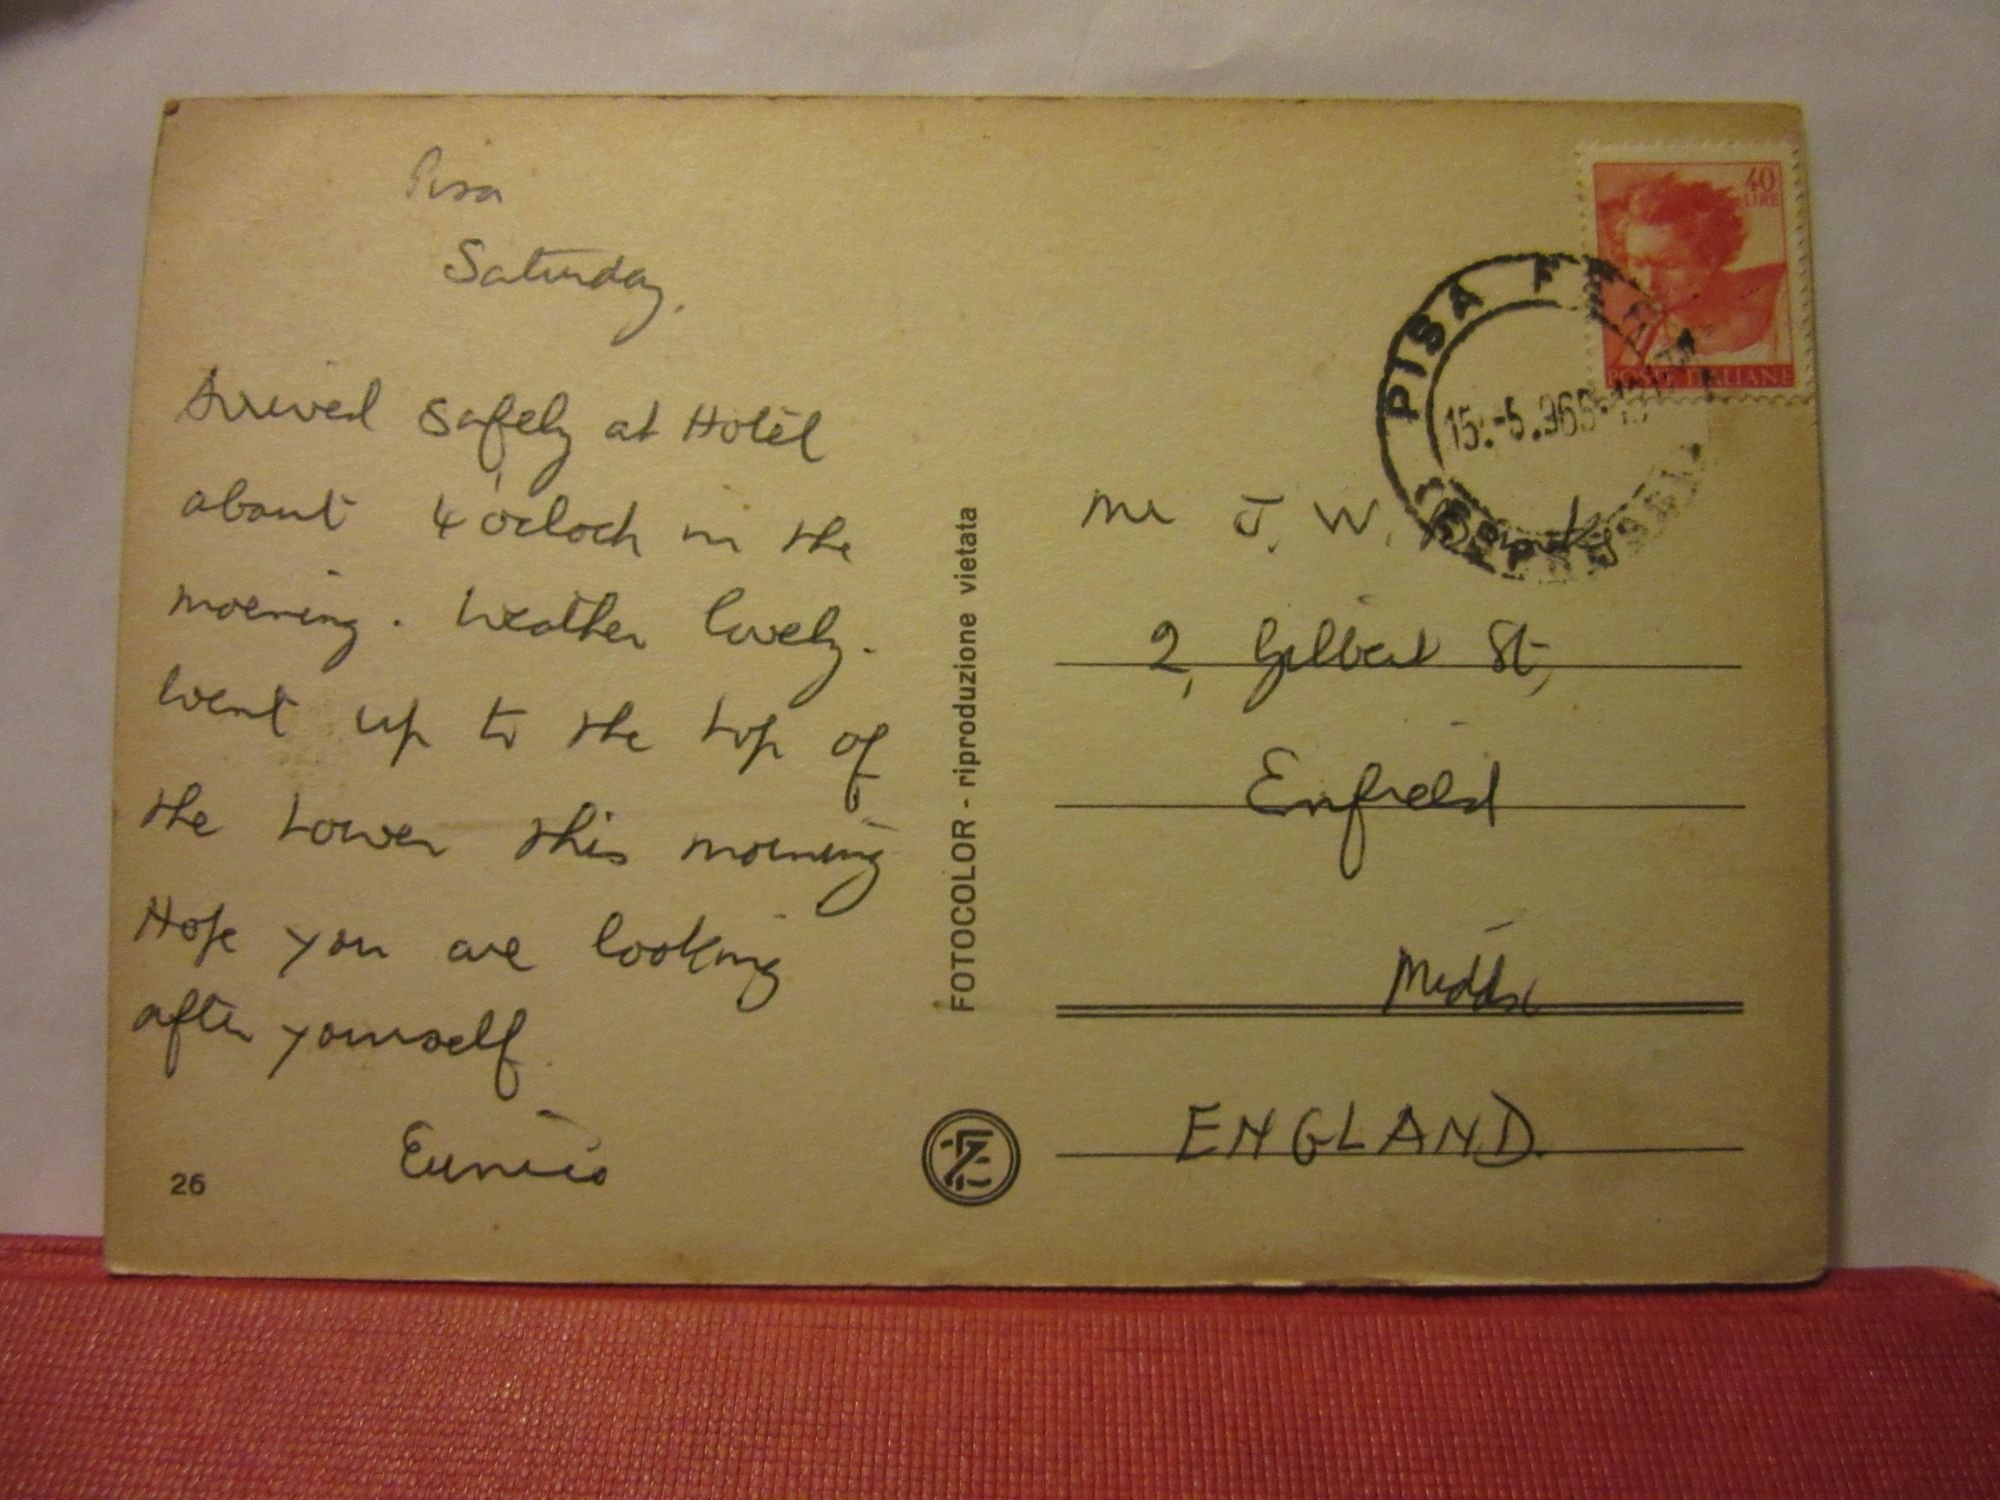 Pisa
Saturday.
Arrived safely at Hotel
about 4 o'clock in the
morning. Weather lovely.
Went up to the top of
the tower this morning
Hope you are looking
after yourself.
Eunice
26
FOTOCOLOR - riproduzione vietata
40
LIRE
POSTE ITALIANE
PISA
15.-5.965
Mr J. W.
2, Gilbert St,
Enfield
Middx
ENGLAND.